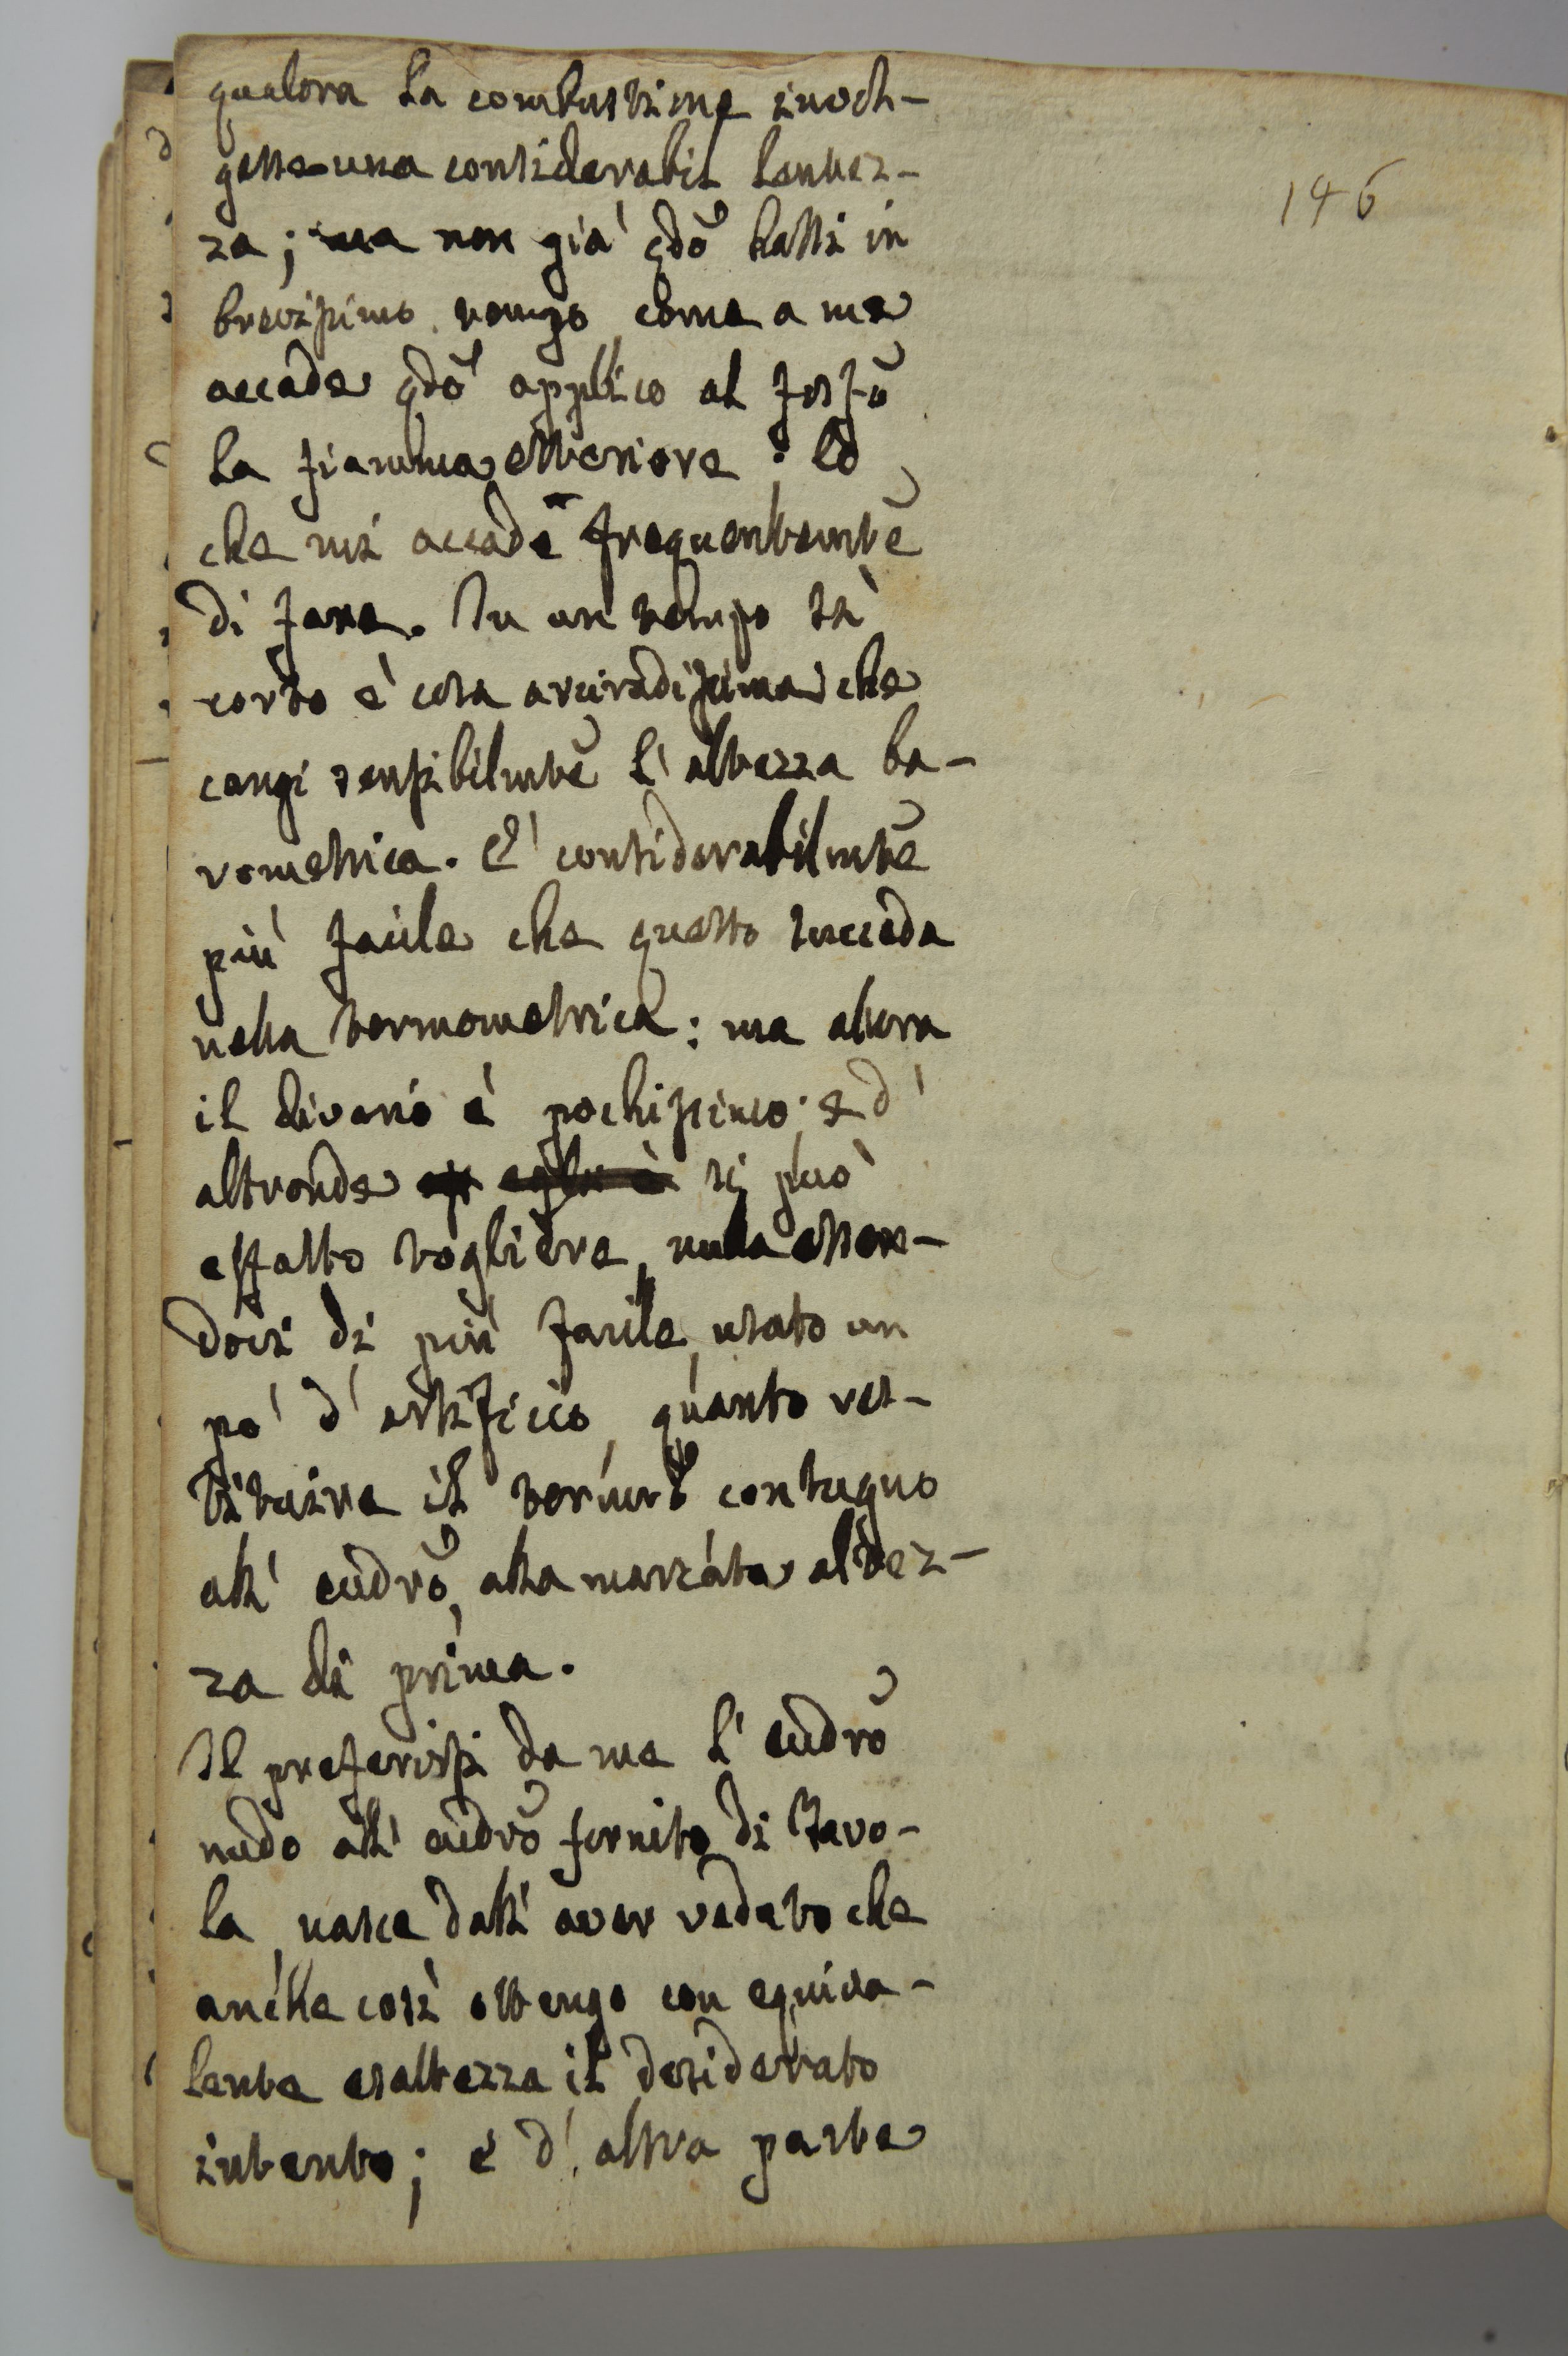 qualora la combustione inch-
gesse una considerabil lentez-
za; ma non già qdõ hassi in
brevissimo tempo, come a me
accade qdõ applico al fosfõ
la fiamma esteriore: lo
che mi accade frequentemtẽ
di fare. In un tempo sì
corto è cosa arciradissima che
cangi sensibilmtẽ l'altezza ba-
rometrica. E' considerabilmtẽ
più facile che questo succeda
nella termometrica: ma allora
il divario è pochissimo; e d'
altronde si può
affatto togliere, nulla essen-
doci di più facile, usato un
po' d'artificio, quanto res-
tituire il termrõ contiguo
all' eudrõ, alla marcata altez-
za di prima.
Il preferirsi da me l'eudrõ
nudo all' eudrõ fornito di tavo-
la, nasce dall' aver veduto che
anche così ottengo con equiva-
lente esattezza il desiderato
intento; e d'altra parte
146